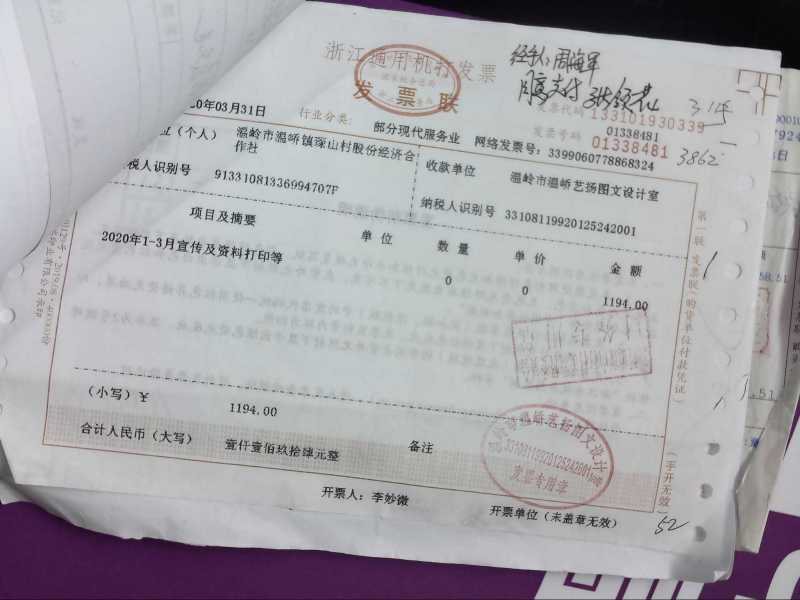 浙江通用机打发票
发票联
经手人:周海军
同意支付
发票代码 133101930339
发票号码 01338481
01338481
20年03月31日
行业分类: 部分现代服务业 网络发票号: 3399060778868324
3862
(个人) 温岭市温峤镇琛山村股份经济合作社
收款单位 温岭市温峤艺扬图文设计室
人识别号 91331081336994707F
纳税人识别号 33108119920125242001
项目及摘要 单位 数量 单价 金额
2020年1-3月宣传及资料打印等 0 0 1194.00
(小写)¥ 1194.00
合计人民币(大写) 壹仟壹佰玖拾肆元整 备注
温岭市温峤艺扬图文设计室
33108119920125242001
发票专用章
开票人:李妙微
开票单位(未盖章无效)
第一联 发票联
(购货单位付款凭证)
(手开无效)
52